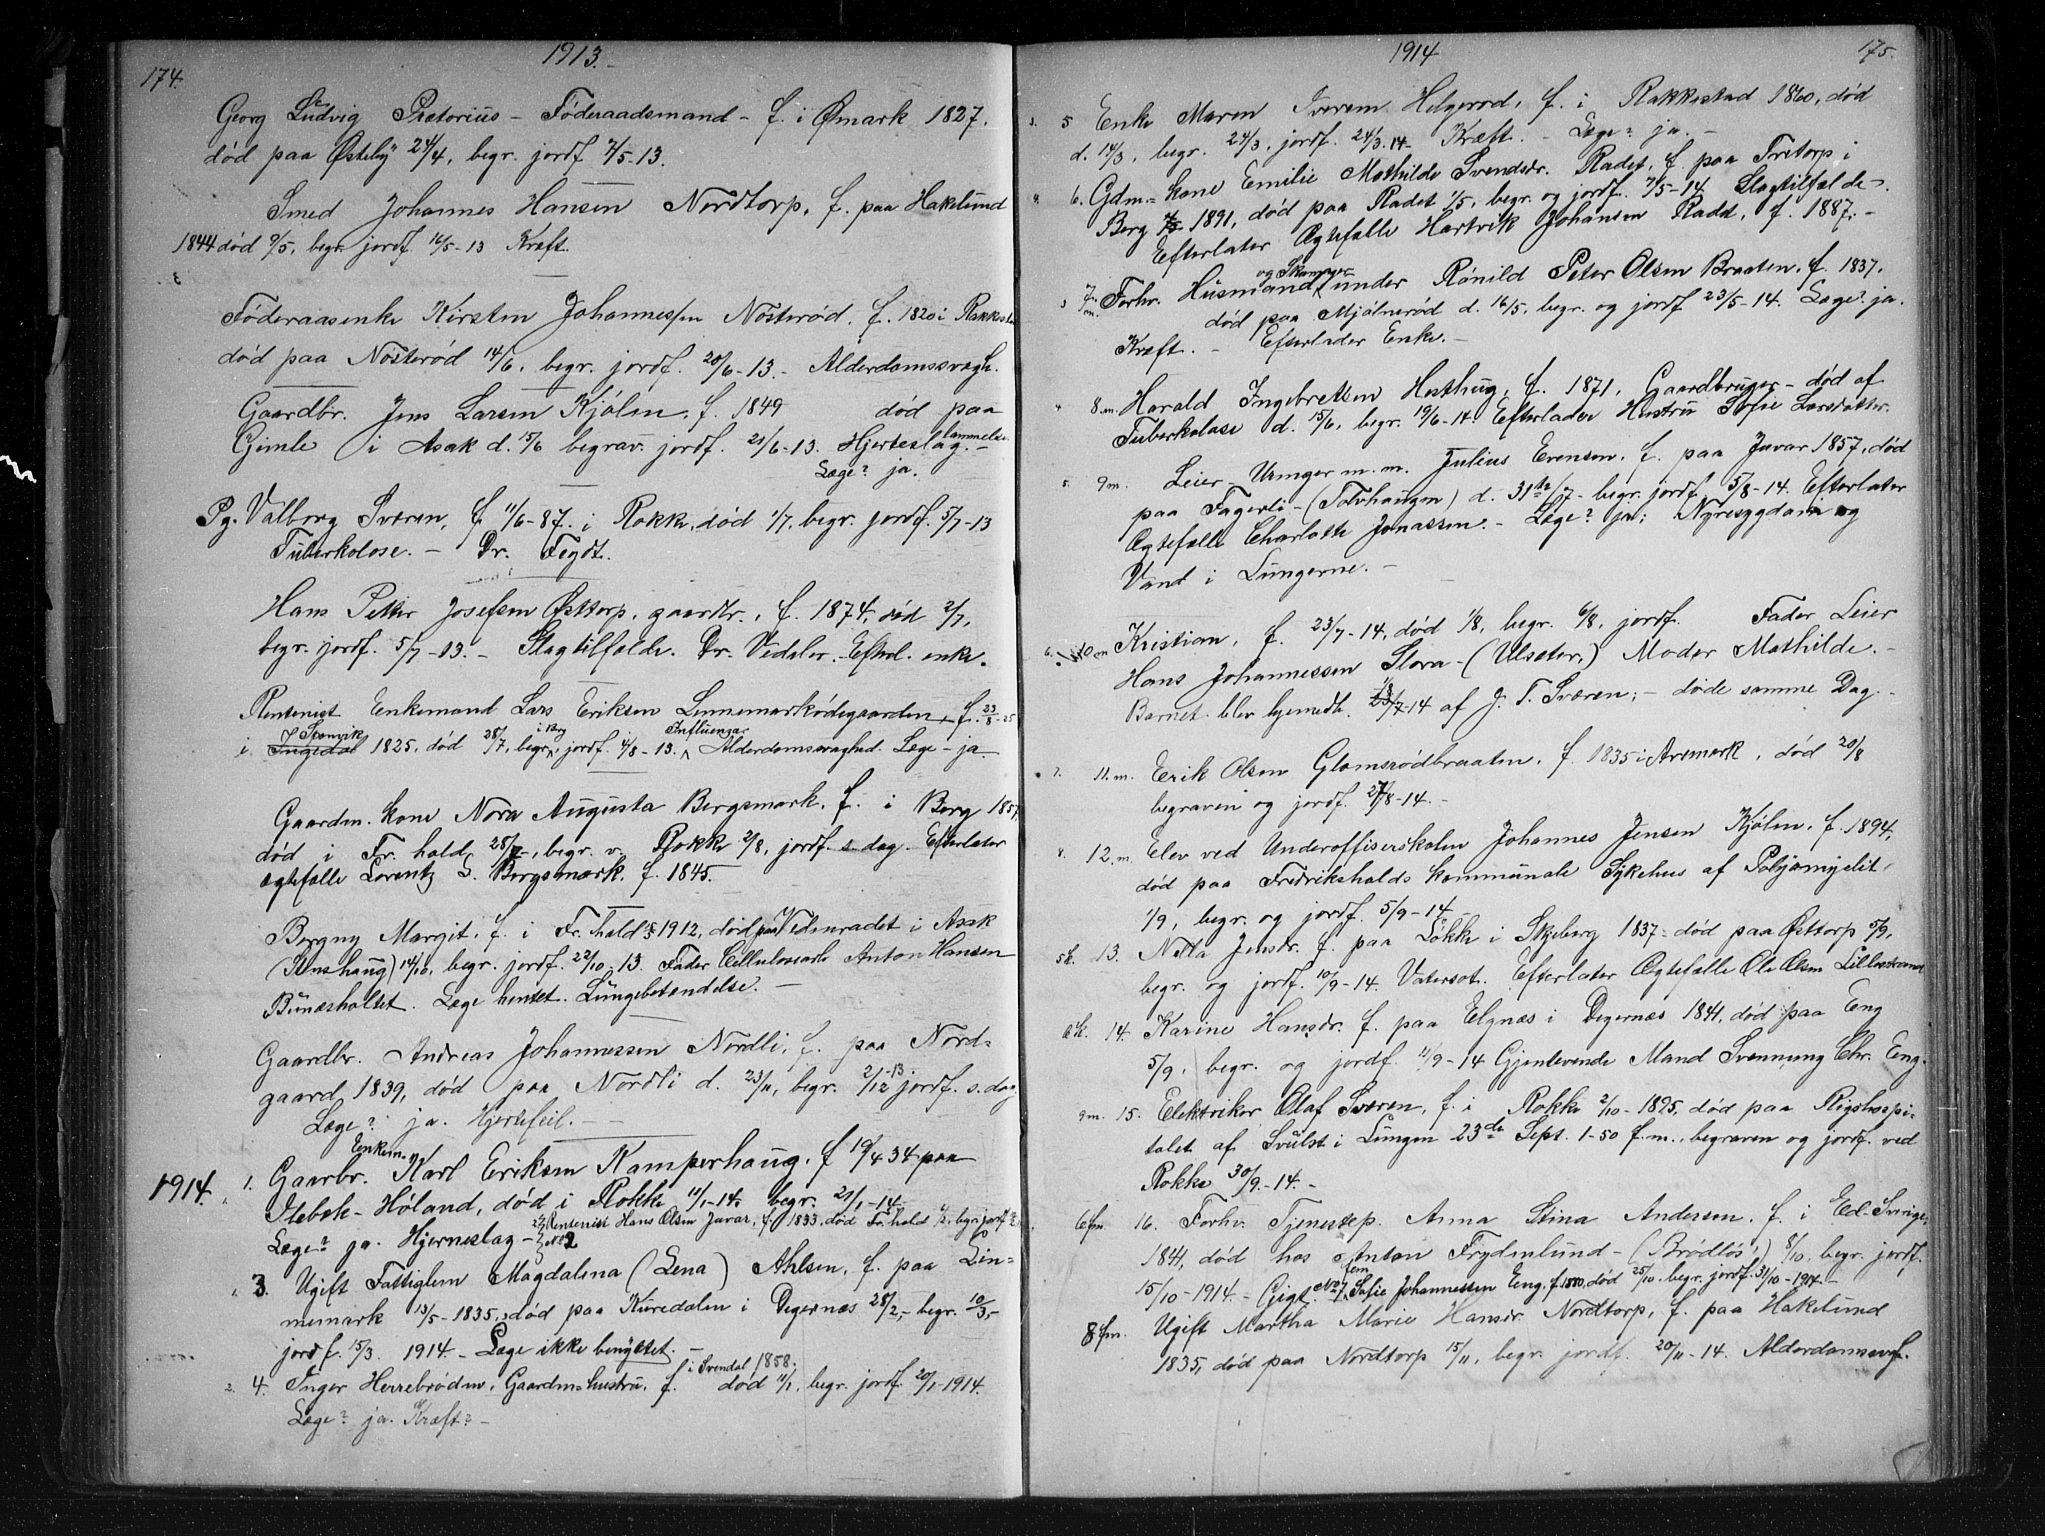 174.
1913.
Georg Ludvig Prætorius - Föderaadsmand - f. i Ømark 1827.
død paa Østeby 24/4, begr. jordf 7/5-13.
Smed Johannes Hansen Nordtorp, f. paa Hakelund
1844 død 9/5, begr. jordf. 16/5-13 Kræft.
Föderaasenke Kirsten Johannessen Nösterød, f. 1820 i Rakkestad
død paa Nösterød 14/6, begr. jordf. 20/6-13. - Alderdomssvagh.
Gaardbr. Jens Larsen Kjölen, f. 1849 død paa
Gimle i Asak d. 15/6 begrav. jordf. 21/6-13. Hjerteslag. - lammelse
Læge? ja.
Pg. Valborg Sværen, f. 11/6-87. i Rokke, død 1/7, begr. jordf. 5/7-13
Tuberkolose. - Dr. Fegdt.
Hans Petter Josefsen Østtorp, gaardbr., f. 1874, død 2/7,
begr. jordf. 5/7-13. - Slagtilfælde. Dr. Vedeler. Efterl. enke.
Rentenist Enkemand Lars Eriksen Linnemarködegaarden, f. 23/8-25
i Stenvik Ingedal 1825, død 28/7, begr. i Berg, jordf. 4/8-13. Influenza Alderdomssvaghed. Læge - ja
Gaardm. kone Nora Augusta Bergsmark, f. i Berg 1857,
død i Fr. hald 28/7, begr. v. Rokke 2/8, jordf. s. dag. Efterlater
ægtefælle Lorentz S. Bergsmark, f. 1845.
Borgny Margit, f. i Fr. hald 1912, död paa Vedenradet i Asak
(Enshaug) 14/10, begr. jordf. 22/10. 13. Fader Cellulosearb. Anton Hansen
Bunæsholtet. Læge hentet. Lungebetændelse. -
Gaardbr. Andreas Johannessen Nordli, f. paa Nord=
gaard 1839, död paa Nordli d. 23/11, begr. 2/12-13 jordf. s. dag
Læge? ja. Hjertefeil. -
Enkem.
1914. 1. Gaarbr. Karl Eriksen Kamperhaug, f 19/4 34 paa
Ilebek - Höland, död i Rokke 11/1-14, begr. 21/1-14
Læge? ja. Hjerneslag - No 2 Rentenist Hans Olsen Javar, f. 1833, død Fr. hald 1/2, begr. jordf
3. Ugift Fattiglem Magdalena (Lena) Ahlsen, f. paa Lin=
nemark 13/5-1835, død paa Kuredalen i Degernæs 28/2, - begr. 10/3, -
jordf. 15/3. 1914. - Læge ikke benyttet. -
2. 4. Inger Herrebröden, Gaardm=hustru, f. i Svendal 1858. död 11/1, begr. jordf. 20/1-1914.
Læge? ja. Kræft? -
1914
175.
5 Enke Maren Iversen Helgerød, f. i Rakkestad 1860, død
d. 14/3, begr. 24/3, jordf. 24/3. 14 - Kræft. - Læge? ja. -
6. Gdm= kone Emilie Mathilde Svendsdr. Radet, f. paa Tretorp i
Berg 1891, död paa Radet 1/5, begr. og jordf. 7/5-14. Slagtilfælde-.
Efterlater Ægtefælle Hartvik Johansen Radet, f. 1887. -
7 m. Forhv. Husmand og Skomager under Rönild Peter Olsen Braaten, f. 1837,
död paa Mjölneröd d. 16/5, begr. og jordf 23/5-14. Læge? ja.
Kræft. - Efterlader Enke. -
8. m. Harald Ingebretsen Hesthug, f. 1871, Gaardbruger - död af
Tuberkolose d. 15/6, begr. 19/6-14. Efterlader Hustru Sofie Larsdatter.
5. 9 m. Leier - Urmager m. m. Julius Evensen, f. paa Javar 1857, död
paa Fagerli - (Tolvhaugen) d. 31te/7 - begr. jordf. 5/8-14. Efterlater
Ægtefælle Charlotte Jonassen. - Læge? ja; Nyresygdom og
Vand i Lungerne. -
6. 10 m Kristian, f. 23/7-14, död 1/8, begr. 6/8, jordf. Fader Leier
Hans Johannessen Slora - (Ulsæter.) Moder Mathilde. -
Barnet blev hjemedb. 1/8 23/7-14 af J. T. Sværen; - döde samme Dag. -
7. 11. m. Erik Olsen Glomsrödbraaten, f. 1835 i Aremark, död 20/8
begraven og jordf. 27/8-14. -
8. 12. m. Elev ved Underoffiserskolen Johannes Jensen Kjölen, f. 1894,
död paa Fredrikshalds kommunale Sykehus af Polyomyelit,
1/9, begr. og jordf. 5/9-14.
5 k. 13. Nella Jensdr. f. paa Lökke i Skjeberg 1837 - död paa Østtorp 5/9,
begr. og jordf. 10/9-14. Vatersot. Efterlater Ægtefælle Ole Olsen Lillestrand
6 k. 14. Karine Hansdr. f. paa Elgnæs i Degernæs 1841, död paa Eng
5/9, begr. og jordf. 11/9-14 Gjenlevende Mand Svennung Chr. Eng.
9 m. 15. Elektriker Olaf Sværen, f. i Rokke 2/10-1895, död paa Rigshospi-
talet af Svulst i Lungen 23de Sept. 1-50 f. m., begraven og jordf. ved
Rokke 30/9-14. -
6 fm. 16. Forhv. Tjenestep. Anna Stina Andersen, f. i Ed - Sverige,
1841, död hos Anton Frydenlund - (Brödlös) 8/10, begr. jordf.
15/10-1914. - Gigt. No 7 fem Sofie Johannessen Eng, f. 1880, död 25/10, begr. jordf. 31/10-1914. -
8 fm. Ugift Martha Marie Hansdr. Nordtorp, f. paa Hakelund
1835, död paa Nordtorp 15/11, begr. jordf. 20/11-14. Alderdomssvgh.